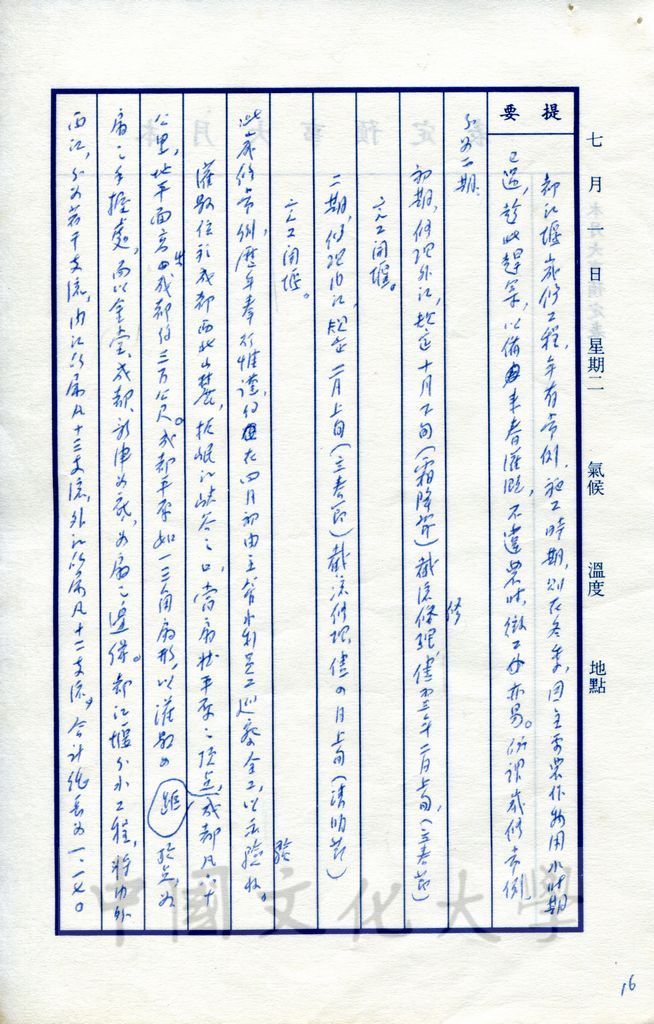 七月一日 星期二 氣候 溫度 地點
提要
都江堰歲修工程,年有常例,施工時期,則在冬季,因主要農作物用水時期
已過,趁此趕築,以備來春灌溉,不違農時,徵工亦易。所謂歲修常例
分為二期:
初期,修理外江,規定十月下旬(霜降節)截流修理,翌年二月上旬(立春節)
完工開堰。
二期,修理內江,規定二月上旬(立春節)截流修理,四月上旬(清明節)
完工開堰。
此歲修常例,歷年奉行惟謹,約在四月初由主管水利員工巡察全工,以示驗收。
灌縣位於成都西北山麓,扼岷江峽谷之口,當扇狀平原之頂點,距成都凡六十
公里,地平面高出成都約三百公尺。成都平原如一三角扇形,以灌縣為
扇之手握處,而以金堂、成都、新津為底,為扇之邊緣。都江堰分水工程,將內外
兩江,分為若干支流,內江所屬凡十三支流,外江所屬凡十二支流,合計總長為一、一七〇
16
中國文化大學